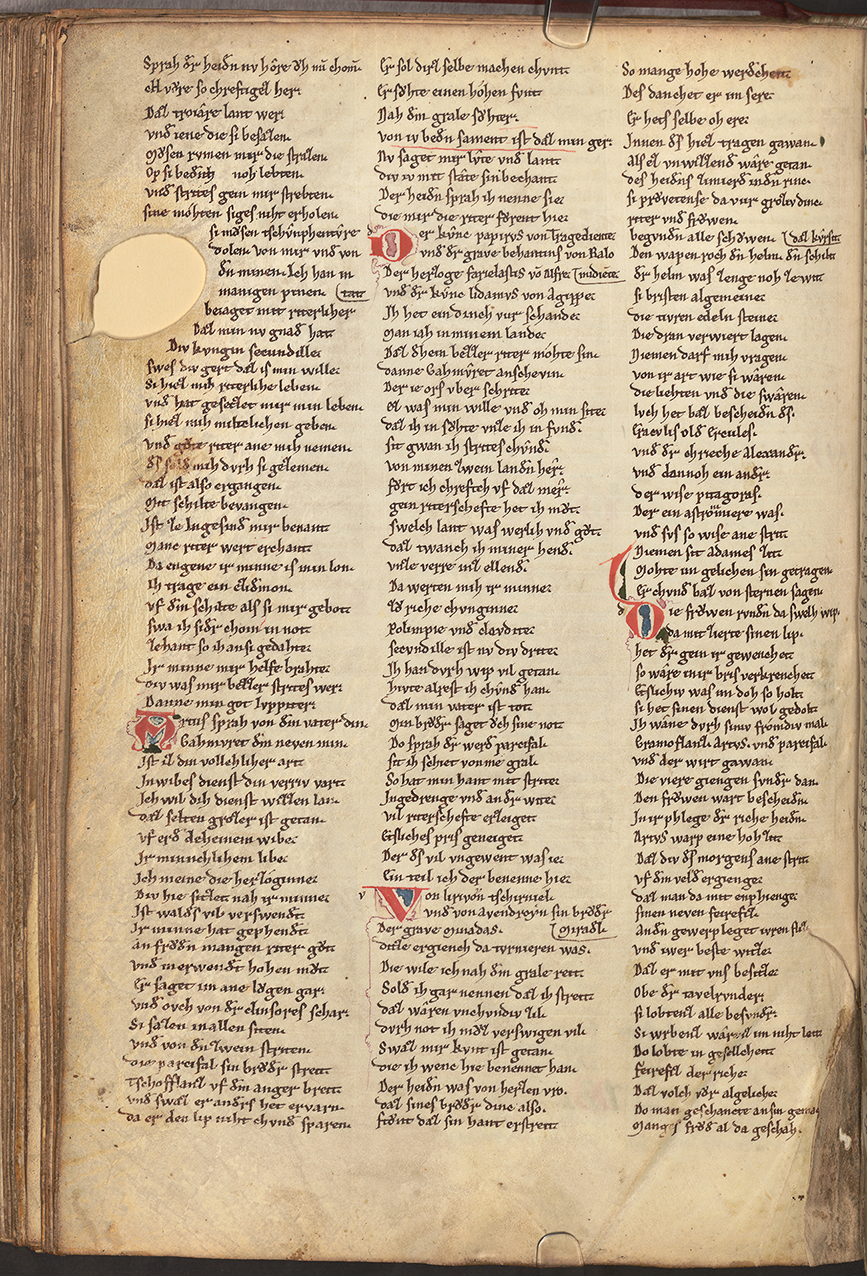 Sprah dˢ heidn nv hôre ôh mi chom̄.
ell vˢre so chreftigeʒ her.
Daʒ troiâre lant wer
vnd iene die si besaʒen.
Mvͦsen rvmen mir die straʒen.
Op si bediͤch noh lebten.
vnd strites gein mir strebten.
sine mohten siges niht erholen.
si mvͦsen tschvnphentvre
dolen von mir vnd von
dn minen. Ich han in
manigen pinen
betaget mit riterlicher tat
Daʒ min nv gnad hat
Div kvngin secundille.
swes div gert daʒ is min wille.
Si hieʒ mih riterlihe leben.
vnd hat geseʒet mir min leben.
si hieʒ mih milteclichen geben.
vnd gvͦte riter ane mih nemen.
mih dvrh si geʒemen.
daʒ ist also ergangen.
Mit schilte bevangen.
Ist ʒe Ingesind mir benant
Manc riter wert erchant.
Da engene ir minne is min lon.
Ih trage ein ecidimon.
vf dem schilte als si mir gebot.
swa ich sidˢ chom in not
ʒehant so ich an si gedahte.
Ir minne mir helfe brahte.
div was mir beʒʒer strites wer.
Danne min got Ivppiter.
Artus sprah von dim vater din
Gahmvret dem neven min.
Ist iʒ din vollchliher art
In wibes dienst din verriv vart.
Ich wil dih dienst wiʒʒen lan.
daʒ selten groʒer ist getan.
vf erd decheinem wibe.
Ir minnechlihem libe.
Ich meine die herʒoginne.
Div hie siʒʒet nah ir minne.
Ist waldes vil verswendt.
Ir minne hat gephendt.
an frevͦdn mangen riter gvͦt
vnd in erwendt hohen mvͦt.
Er saget im ane lvͦgen gar.
vnd ovch von dˢ clinsores schar.
Si saʒen in allen siten.
vnd von dn ʒwein striten.
die parcifal sin brvͦdˢ streit.
Tschofflanʒ vf dem anger breit.
vnd swaʒ er andˢs het ervarn.
da er den lip niht chvnd sparen.
Er sol dirʒ selbe machen chunt.
Er svͦhte einen hohen fvnt.
Nah dem grale svͦhter.
von iv bedn sament ist daʒ min ger.
Nv saget mir lvte vnd lant.
div iv mit strite sin bechant.
Der heidn sprah ich nenne sie.
die mir die riter fvͦrent hie.
Der kvnc papirvs von Tragediente.
vnd dˢ grave behantins von Kalo
Der herʒoge farielastis vō Affric midiete.
vnd dˢ kvnc lidamvs von Agrippe
Ih het ein dinch vur schande.
Man iah in minem lande.
Daʒ dhein beʒʒer riter mohte sin.
danne Gahmvret anschevin.
Der ie ors vber schrite.
eʒ was min wille vnd oh min site.
daʒ ih in svͦhte vnʒe ih in fvnd.
sit gwan ih strites chvnd.
von minen ʒwein landn her.
fvͦrt ich chreftech vf daʒ mer.
gein riterschefte het ih mvͦt.
swelch lant was werlih vnd gvͦt.
daʒ twanch ih miner hend.
vnʒe verre inʒ ellend.
Da werten mih ir minne.
ʒwͦ riche chvnginne.
Rolimpie vnd clavditte.
secvndille ist nv div dritte.
Ih han dvrh wip vil getan.
hivte alrest ih chvnd han.
daʒ min vater ist tot.
Min brvͦdˢ saget ovh sine not.
Do sprah dˢ werd parcifal.
sit ih schiet von me gral.
So hat min hant mit strite.
Ingedrenge vnd andˢ wite.
vil riterschefte erʒeiget.
Etsliches pris geneiget.
Der des vil vngewent was ie.
Ein teil ich der benenne hie.
Von lirivon Tschirniel.
vnd von Avendroyn sin brvͦdˢ
Der grave Miradas. Miradʒ.
ditʒe ergiench da tvrnieren was.
Die wile ich nah dem grale reit.
Sold ih gar nennen daʒ ih streit.
daʒ wâren vnchvndiv ʒil.
dvrh not ih mvͦʒ verswigen vil.
Swaʒ mir kvnt ist getan.
die ich wene hie benennet han.
Der heidn was von herʒen vro.
daʒ sines brvͦdˢ dinc also.
stvͦnt daʒ sin hant erstreit.
So mange hohe werdcheit.
Des danchet er im sere.
Er hets selbe oh ere.
Innen des hieʒ tragen gawan.
als eʒ vnwiʒʒend wâre getan.
des heidns ʒimierd in dn rinc.
si prvͦvetenʒe da vur groʒiv dinc.
riter vnd frvͦwen.
begvndn alle schowen. daʒ kvrsit
Den wapen roch dn helm. dn schilt
dˢ helm was ʒenge noh ʒe wit
si bristen algemeine
die tivren edeln steine.
Die dran verwiert lagen.
Niemen darf mih vragen.
von ir art wie si waren.
die liehten vnd die swâren.
Ivch het baʒ bescheidn des.
Eraclivs old Ercules.
vnd dˢ chrieche Alexandˢ.
vnd dannoh ein andˢ.
der wise pitagoras.
Der ein astronmiere was.
vnd svs so wise ane strit
Niemen sit adames ʒit.
Mohte im gelichen sin getragen.
Er chvnd baʒ von sternen sagen.
Die frvͦwen rvndn da sweh wip.
da mit ʒierte sinen lip.
het dˢ gein ir gewenchet.
so wâre im bris verkrenchet.
Etslichiv was im doh so holt.
si het sinen dienst wol gedolt.
Ih wâne dvrh siniv fromdiv mal.
Gramoflanʒ. Artvs. vnd parcifal.
vnd der wirt gawan.
Die viere giengen svndˢ dan.
Den frvͦwen wart bescheidn.
In ir phlege dˢ riche heidn.
Artvs warp eine hohʒit.
Daʒ div des morgens ane strit.
vf dem velde ergienge.
daʒ man da mit enphienge.
sinen neven feirefiʒ.
An dn gewerp leget iwren fliʒ.
vnd iwer beste witʒe.
Daʒ er mit vns besitʒe.
Obe dˢ tavelrvnder.
si lobtenʒ alle besvndˢ.
Si wrbenʒ wâreʒ im niht leit.
Do lobte in geselleheit.
feirefiʒ der riche.
Daʒ volch vvͦr algeliche.
Do man geschancte an sin gemach.
Manges frevͦd al da geschah.